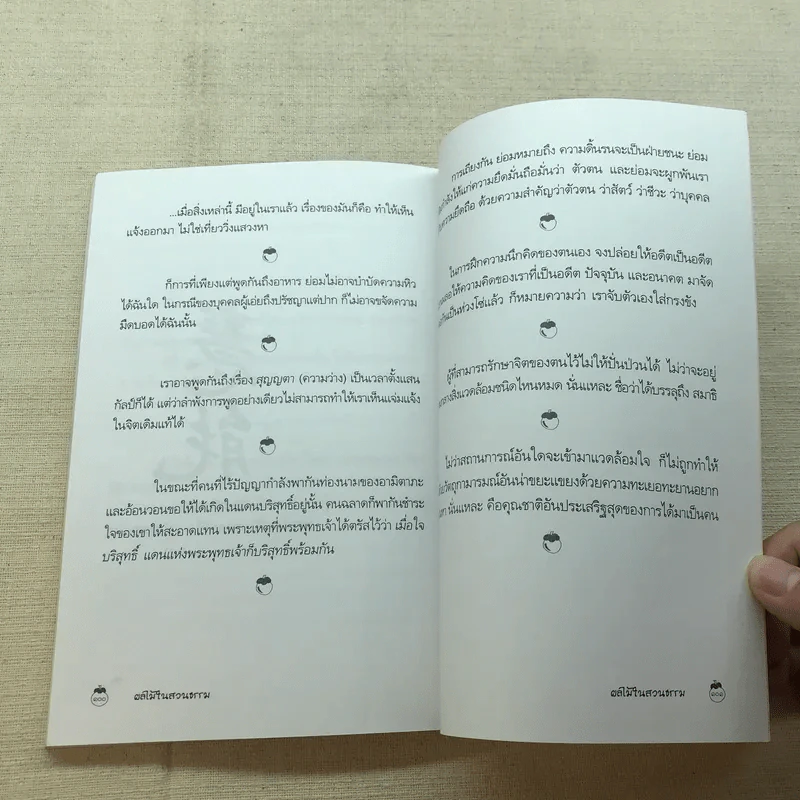 ...เมื่อสิ่งเหล่านี้ มีอยู่ในเราแล้ว เรื่องของมันก็คือ ทำให้เห็น
แจ้งออกมา ไม่ใช่เที่ยววิ่งแสวงหา
ก็การที่เพียงแต่พูดกันถึงอาหาร ย่อมไม่อาจบำบัดความหิว
ได้ฉันใด ในกรณีของบุคคลผู้เอ่ยถึงปรัชญาแต่ปาก ก็ไม่อาจขจัดความ
มืดบอดได้ฉันนั้น
เราอาจพูดกันถึงเรื่อง สุญญตา (ความว่าง) เป็นเวลาตั้งแสน
กัลป์ก็ได้ แต่ว่าลำพังการพูดอย่างเดียวไม่สามารถทำให้เราเห็นแจ่มแจ้ง
ในจิตเดิมแท้ได้
ในขณะที่คนที่ไร้ปัญญากำลังพากันท่องนามของอามิตาภะ
และอ้อนวอนขอให้ได้เกิดในแดนบริสุทธิ์อยู่นั้น คนฉลาดก็พากันชำระ
ใจของเขาให้สะอาดแทน เพราะเหตุที่พระพุทธเจ้าได้ตรัสไว้ว่า เมื่อใจ
บริสุทธิ์ แดนแห่งพระพุทธเจ้าก็บริสุทธิ์พร้อมกัน
๑๐๐ ผลไม้ในสวนธรรม
การเถียงกัน ย่อมหมายถึง ความดิ้นรนจะเป็นฝ่ายชนะ ย่อม
กำลังให้แก่ความยึดมั่นถือมั่นว่า ตัวตน และย่อมจะผูกพันเรา
ความยึดถือ ด้วยความสำคัญว่าตัวตน ว่าสัตว์ ว่าชีวะ ว่าบุคคล
ในการฝึกความนึกคิดของตนเอง จงปล่อยให้อดีตเป็นอดีต
ให้ความคิดของเราที่เป็นอดีต ปัจจุบัน และอนาคต มาจัด
เป็นห่วงโซ่แล้ว ก็หมายความว่า เราจับตัวเองใส่กรงขัง
ผู้ที่สามารถรักษาจิตของตนไว้ไม่ให้ปั่นป่วนได้ ไม่ว่าจะอยู่
สิ่งแวดล้อมชนิดไหนหมด นั่นแหละ ชื่อว่าได้บรรลุถึง สมาธิ
ไม่ว่าสถานการณ์อันใดจะเข้ามาแวดล้อมใจ ก็ไม่ถูกทำให้
วัตถุกามารมณ์อันน่าขยะแขยงด้วยความทะเยอทะยานอยาก
นั่นแหละ คือคุณชาติอันประเสริฐสุดของการได้มาเป็นคน
ผลไม้ในสวนธรรม